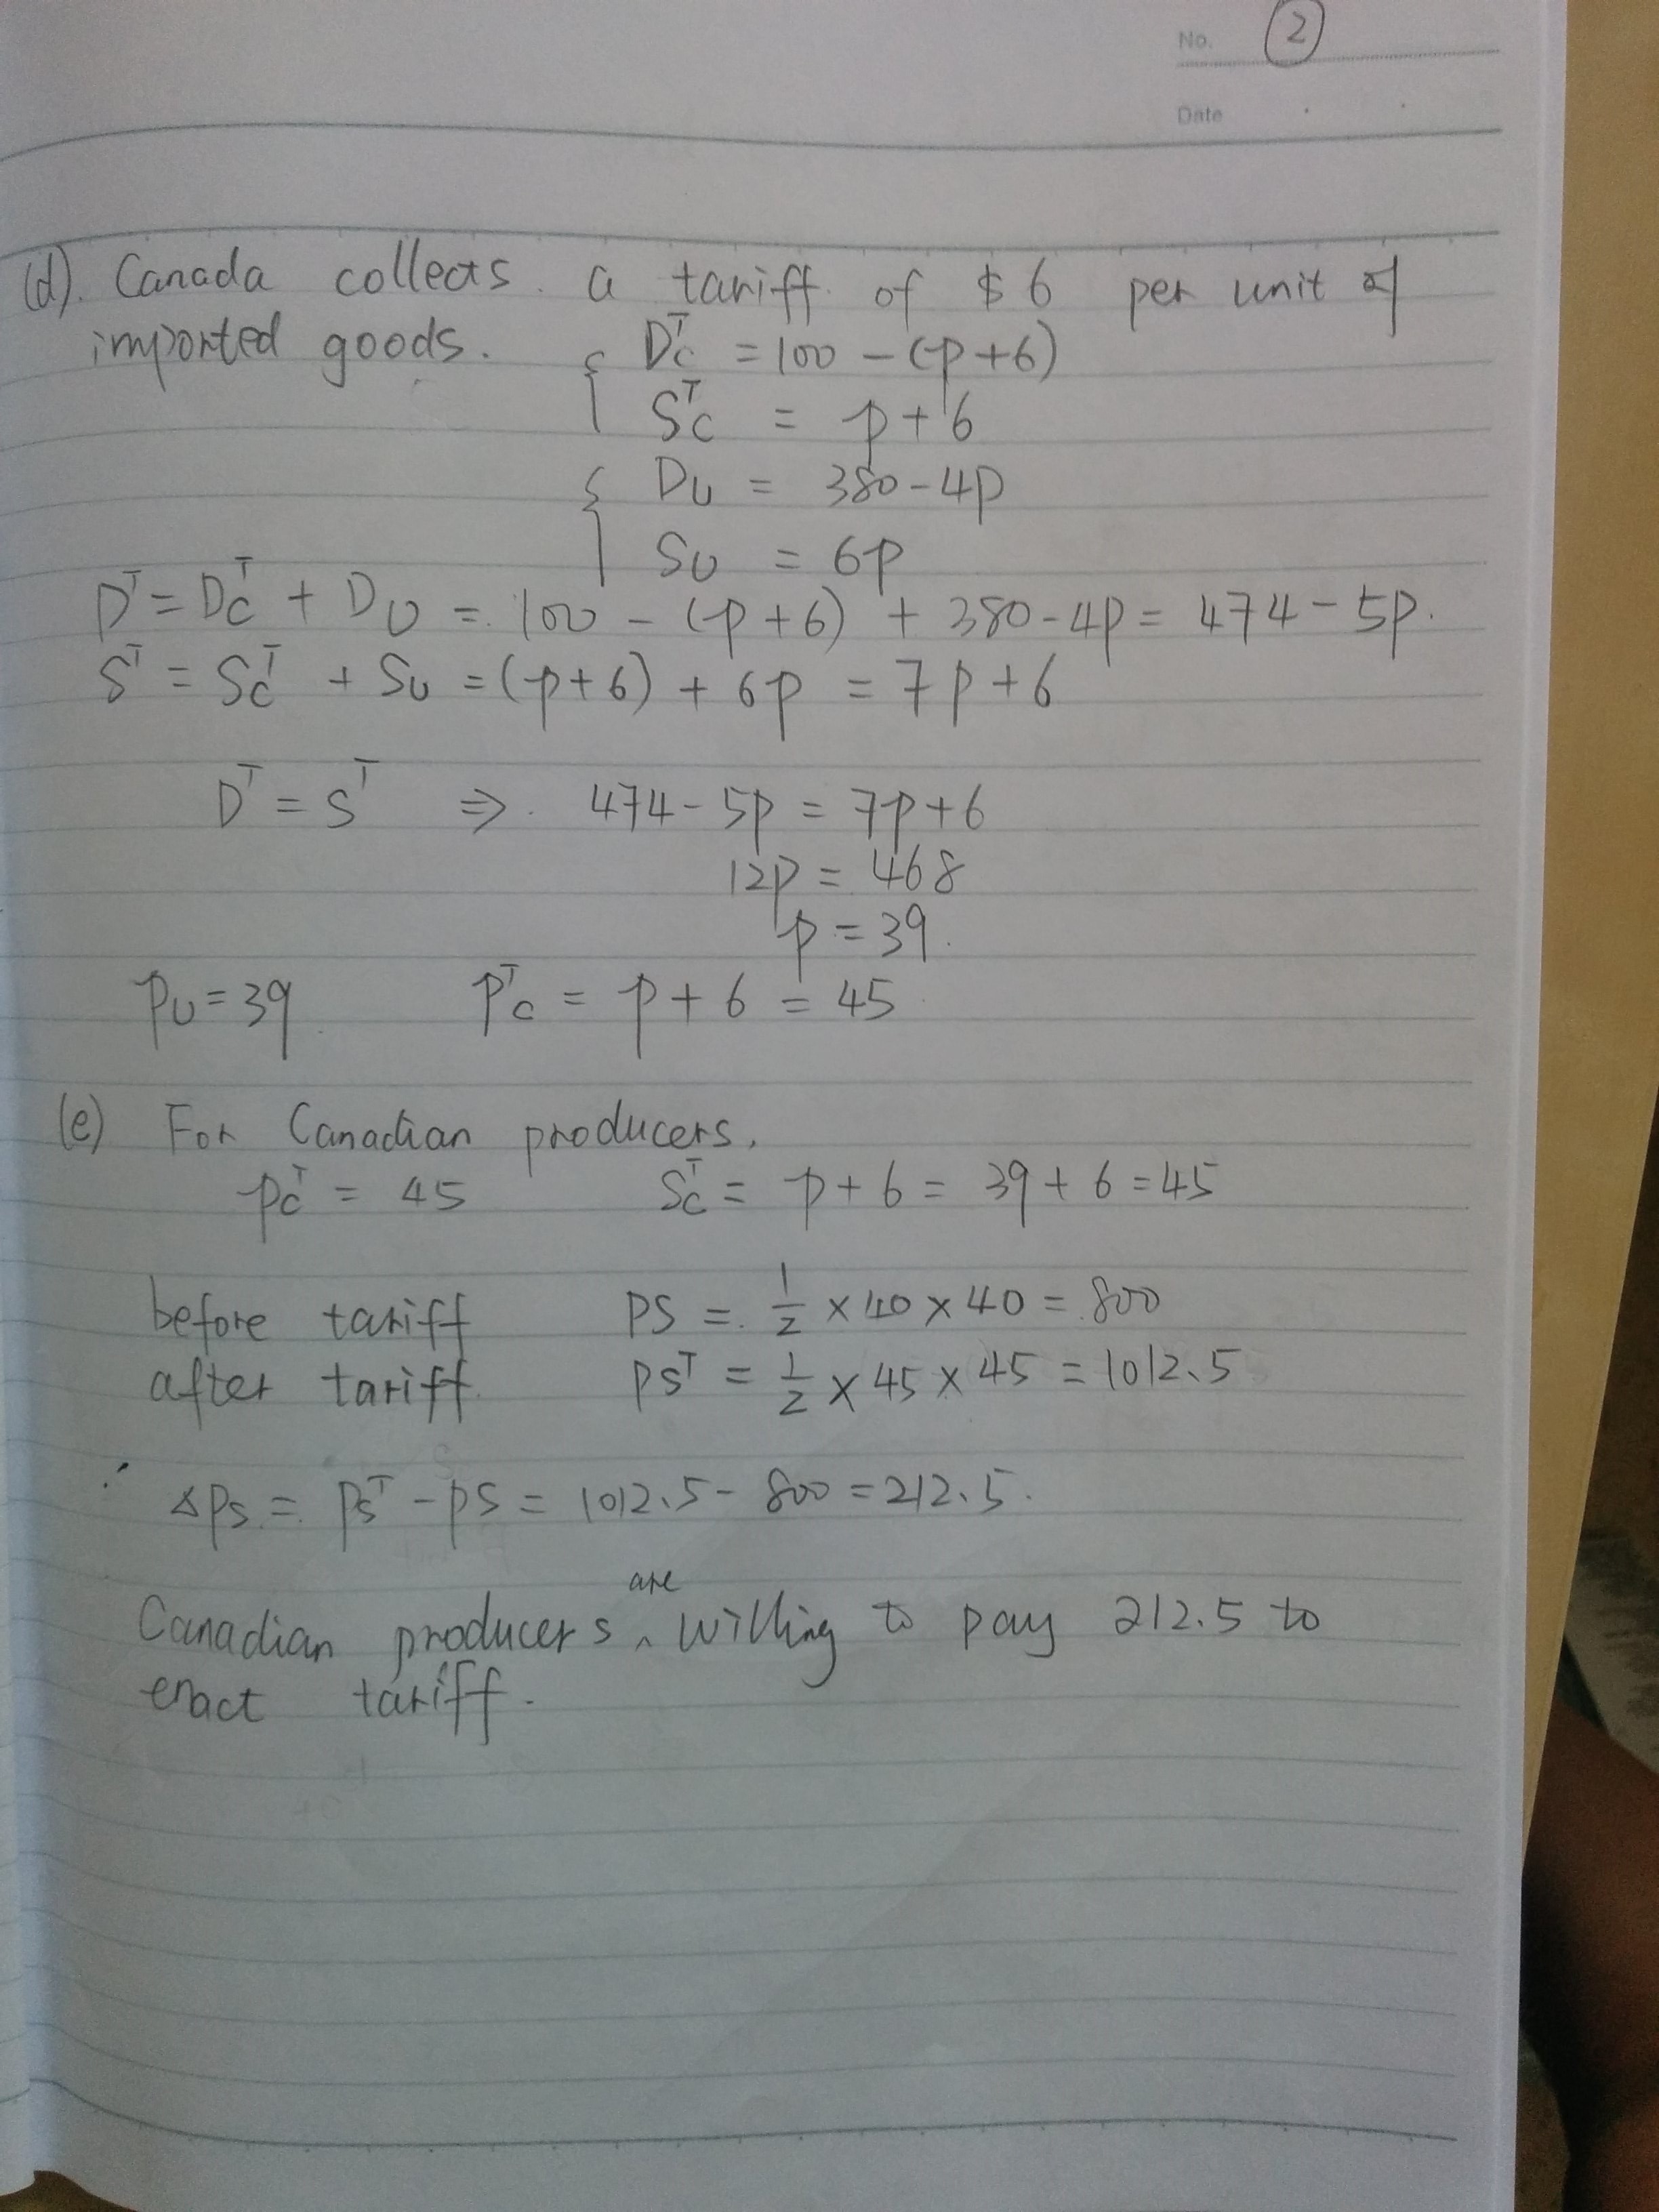 No. ②
Date
(d). Canada collects a tariff of $6 per unit of
imported goods. { D_C^T = 100 - (p+6)
S_C^T = p+6
{ D_U = 380-4p
S_U = 6p
D^T = D_C^T + D_U = 100 - (p+6) + 380-4p = 474-5p.
S^T = S_C^T + S_U = (p+6) + 6p = 7p+6
D^T = S^T ⇒ 474-5p = 7p+6
12p = 468
p = 39.
p_U = 39 p_C^T = p+6 = 45
(e) For Canadian producers,
p_C^T = 45 S_C^T = p+6 = 39+6 = 45
before tariff PS = 1/2 × 40 × 40 = 800
after tariff PS^T = 1/2 × 45 × 45 = 1012.5
ΔPS = PS^T - PS = 1012.5 - 800 = 212.5.
Canadian producers are willing to pay 212.5 to
enact tariff.